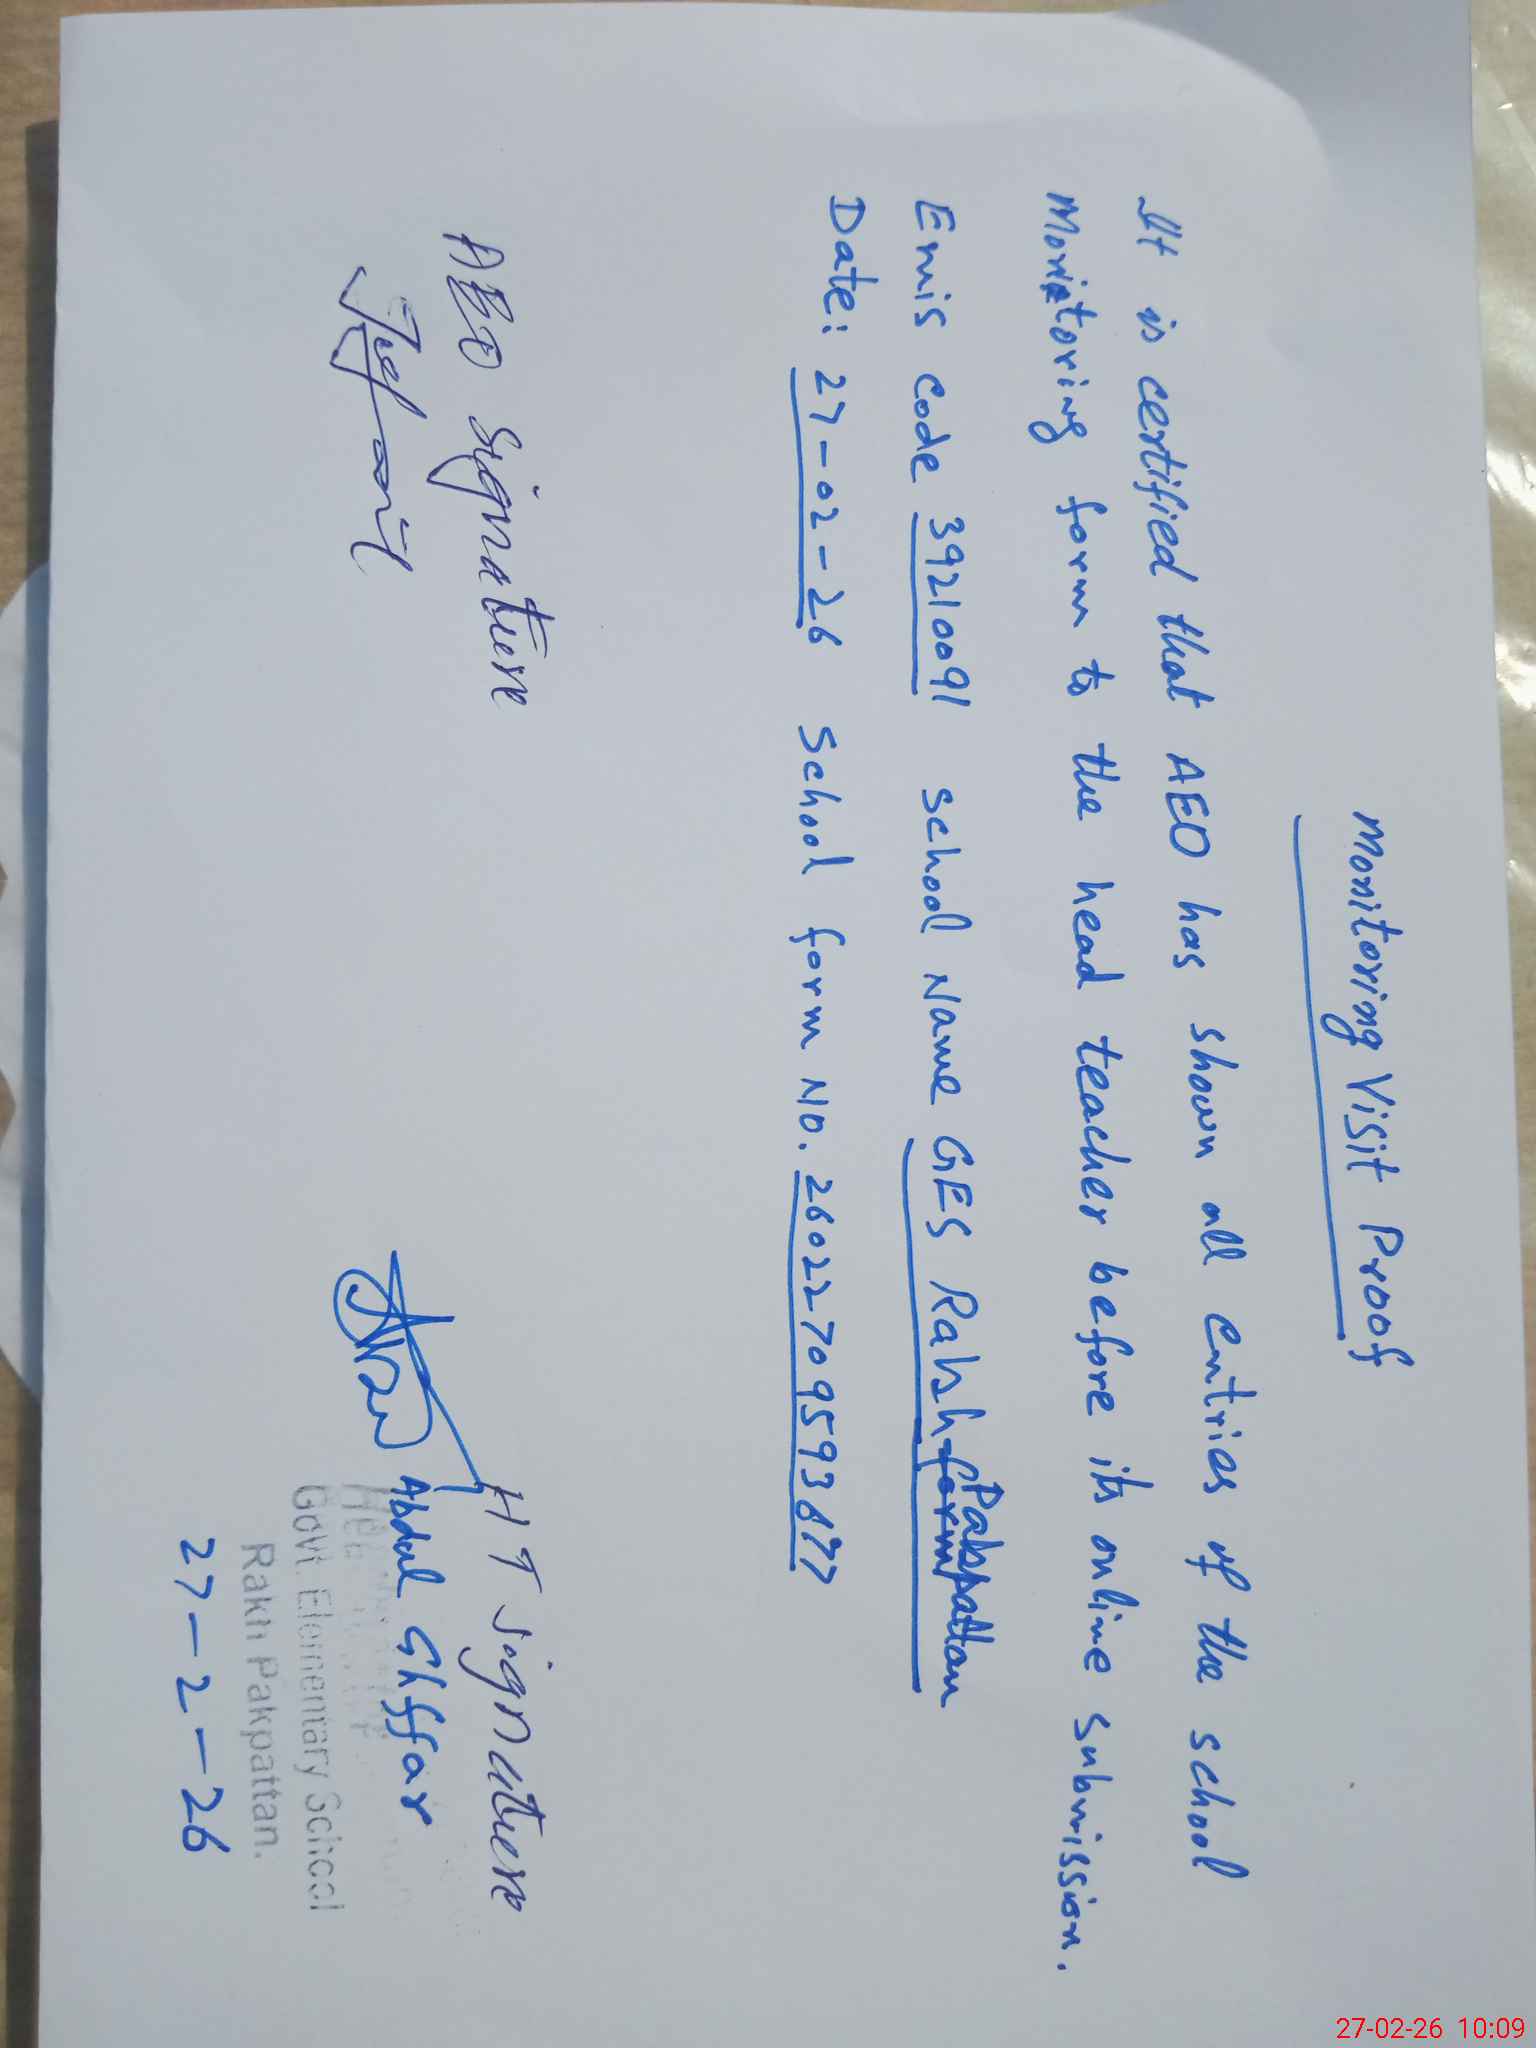 Monitoring Visit Proof
It is certified that AEO has shown all entries of the school
Monitoring form to the head teacher before its online submission.
Emis code 39210091 school Name GES Rakh Pakpattan
Date: 27-02-26 School form No. 26022709593677
AEO Signature
HT Signature
Abdul Ghffar
Govt. Elementary School
Rakh Pakpattan.
27-2-26
27-02-26 10:09